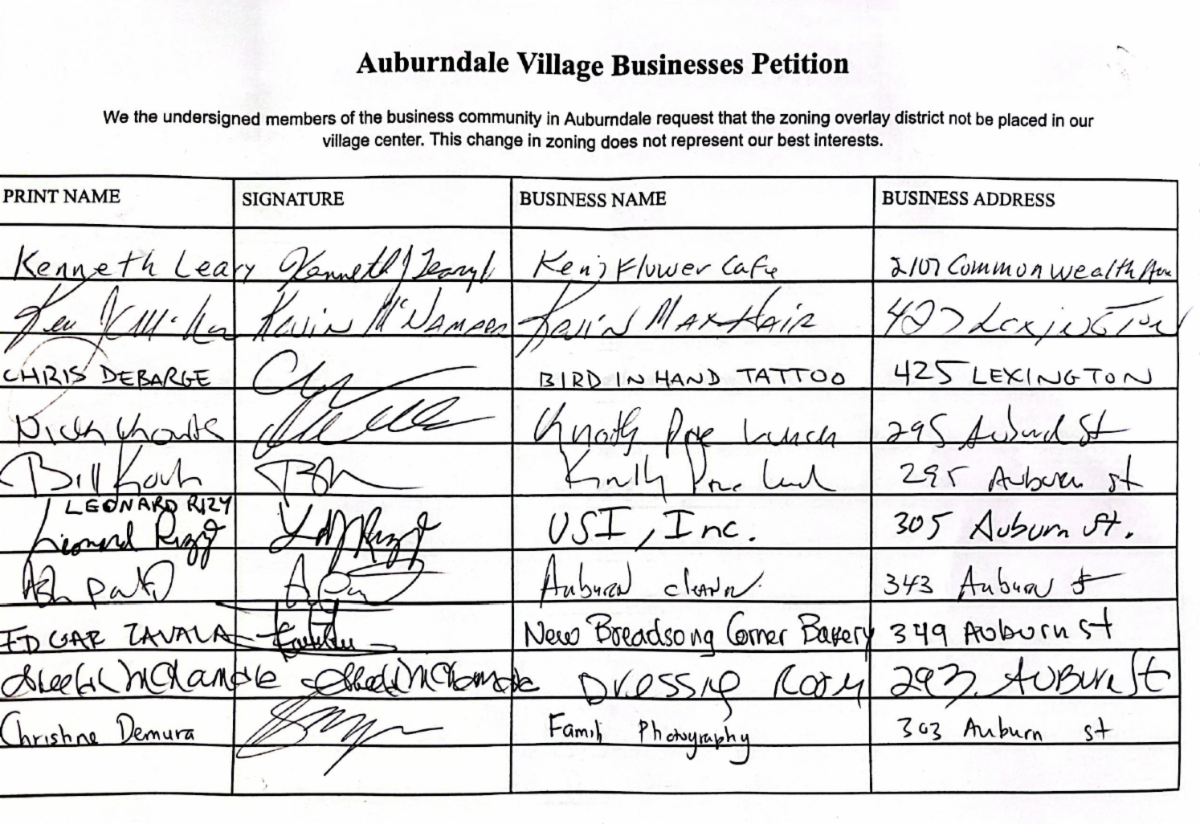 Auburndale Village Businesses Petition
We the undersigned members of the business community in Auburndale request that the zoning overlay district not be placed in our
village center. This change in zoning does not represent our best interests.
PRINT NAME SIGNATURE BUSINESS NAME BUSINESS ADDRESS
Kenneth Leary Kenneth J Leary Ken's Flower Cafe 2107 Commonwealth Ave
Kevin McNamara Kevin Max Hair 427 Lexington
CHRIS DEBARGE BIRD IN HAND TATTOO 425 LEXINGTON
Nick 295 Auburn St
Bill 295 Auburn st
LEONARD RIZY
Leonard Rizy USI, Inc. 305 Auburn St.
Auburn 343 Auburn St
EDGAR ZAVALA New Breadsong Corner Bakery 349 Auburn st
Dressing Room 293 Auburn St
Christine Demura Family Photography 303 Auburn st